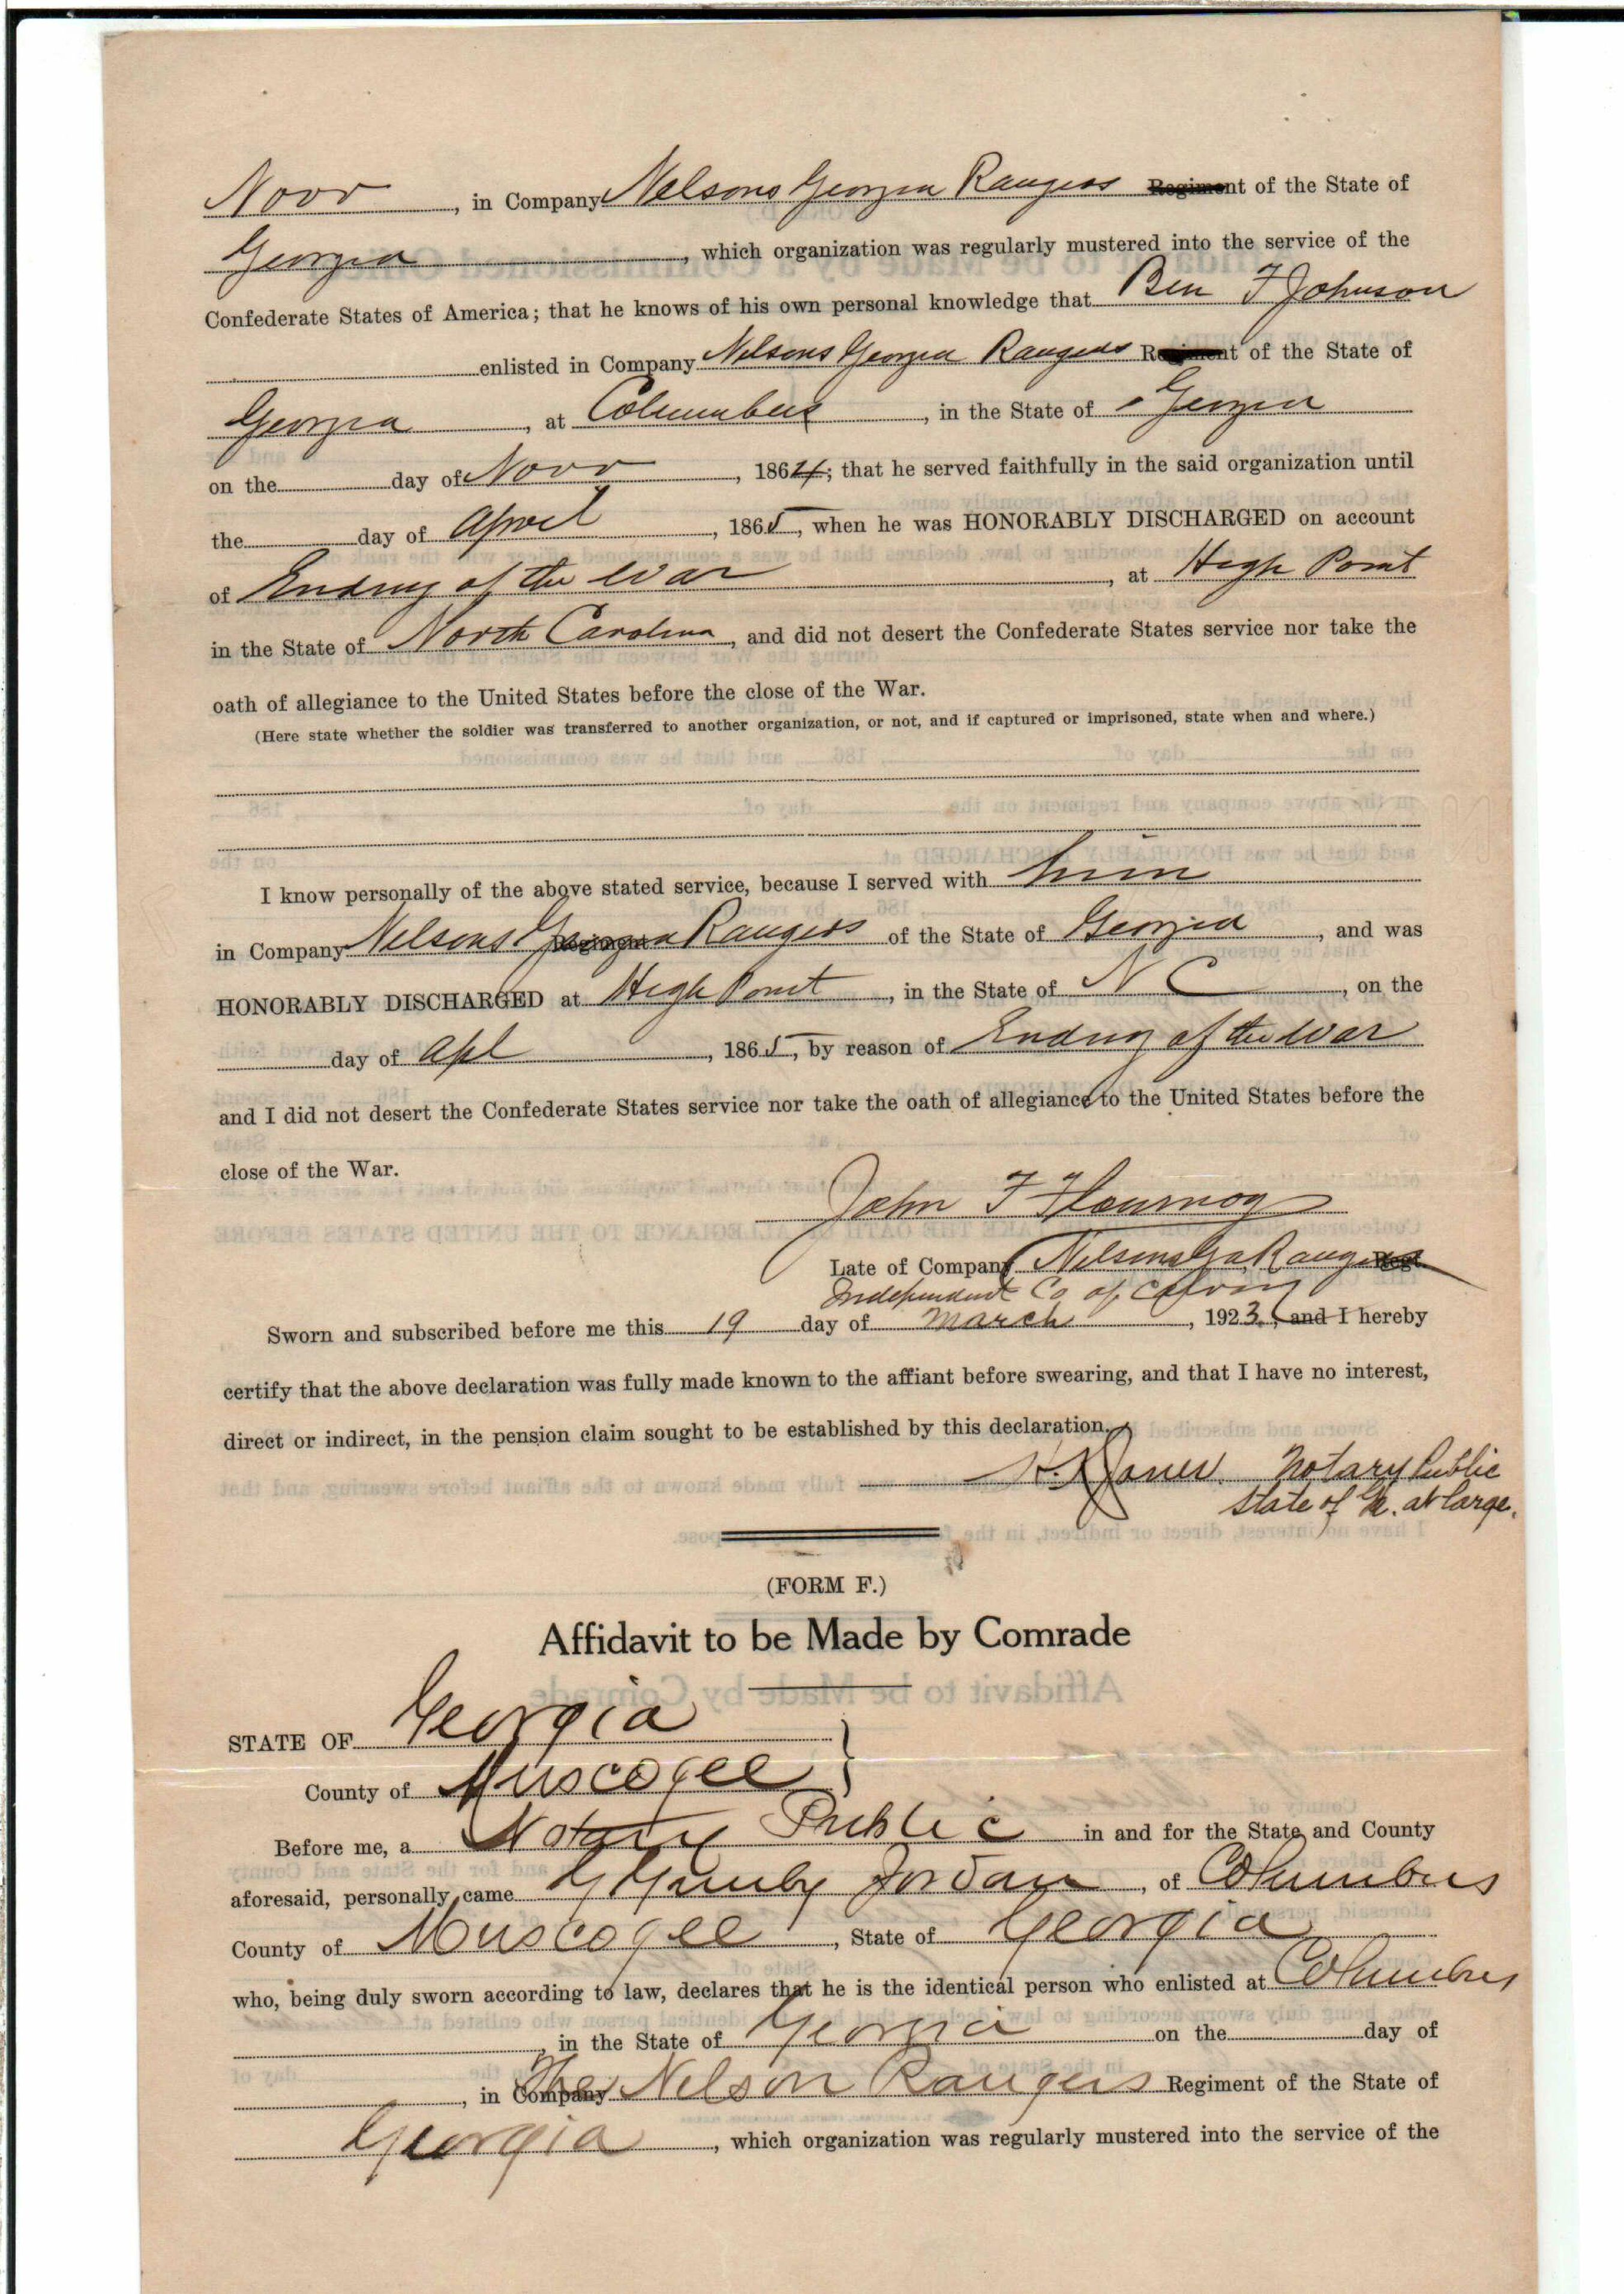 Novr, in Company Nelsons Georgia Rangers Regiment of the State of
Georgia, which organization was regularly mustered into the service of the
Confederate States of America; that he knows of his own personal knowledge that Ben F Johnson
enlisted in Company Nelsons Georgia Rangers Regiment of the State of
Georgia, at Columbus, in the State of Georgia
on the day of Novr, 1864; that he served faithfully in the said organization until
the day of April, 1865, when he was HONORABLY DISCHARGED on account
of Ending of the War, at High Point
in the State of North Carolina, and did not desert the Confederate States service nor take the
oath of allegiance to the United States before the close of the War.
(Here state whether the soldier was transferred to another organization, or not, and if captured or imprisoned, state when and where.)
I know personally of the above stated service, because I served with him
in Company Nelsons Georgia Rangers of the State of Georgia, and was
HONORABLY DISCHARGED at High Point, in the State of N C, on the
day of Apl, 1865, by reason of Ending of the War
and I did not desert the Confederate States service nor take the oath of allegiance to the United States before the
close of the War.
John F Flournoy
Late of Company Nelsons Ga Rangers Regt
Independent Co of Cavry
Sworn and subscribed before me this 19 day of March, 1923, and I hereby
certify that the above declaration was fully made known to the affiant before swearing, and that I have no interest,
direct or indirect, in the pension claim sought to be established by this declaration.
Jones Notary Public
State of Ga. at large.
(FORM F.)
Affidavit to be Made by Comrade
STATE OF Georgia
County of Muscogee }
Before me, a Notary Public in and for the State and County
aforesaid, personally came G Gunby Jordan, of Columbus
County of Muscogee, State of Georgia
who, being duly sworn according to law, declares that he is the identical person who enlisted at Columbus
, in the State of Georgia on the day of
, in Company The Nelson Rangers Regiment of the State of
Georgia, which organization was regularly mustered into the service of the